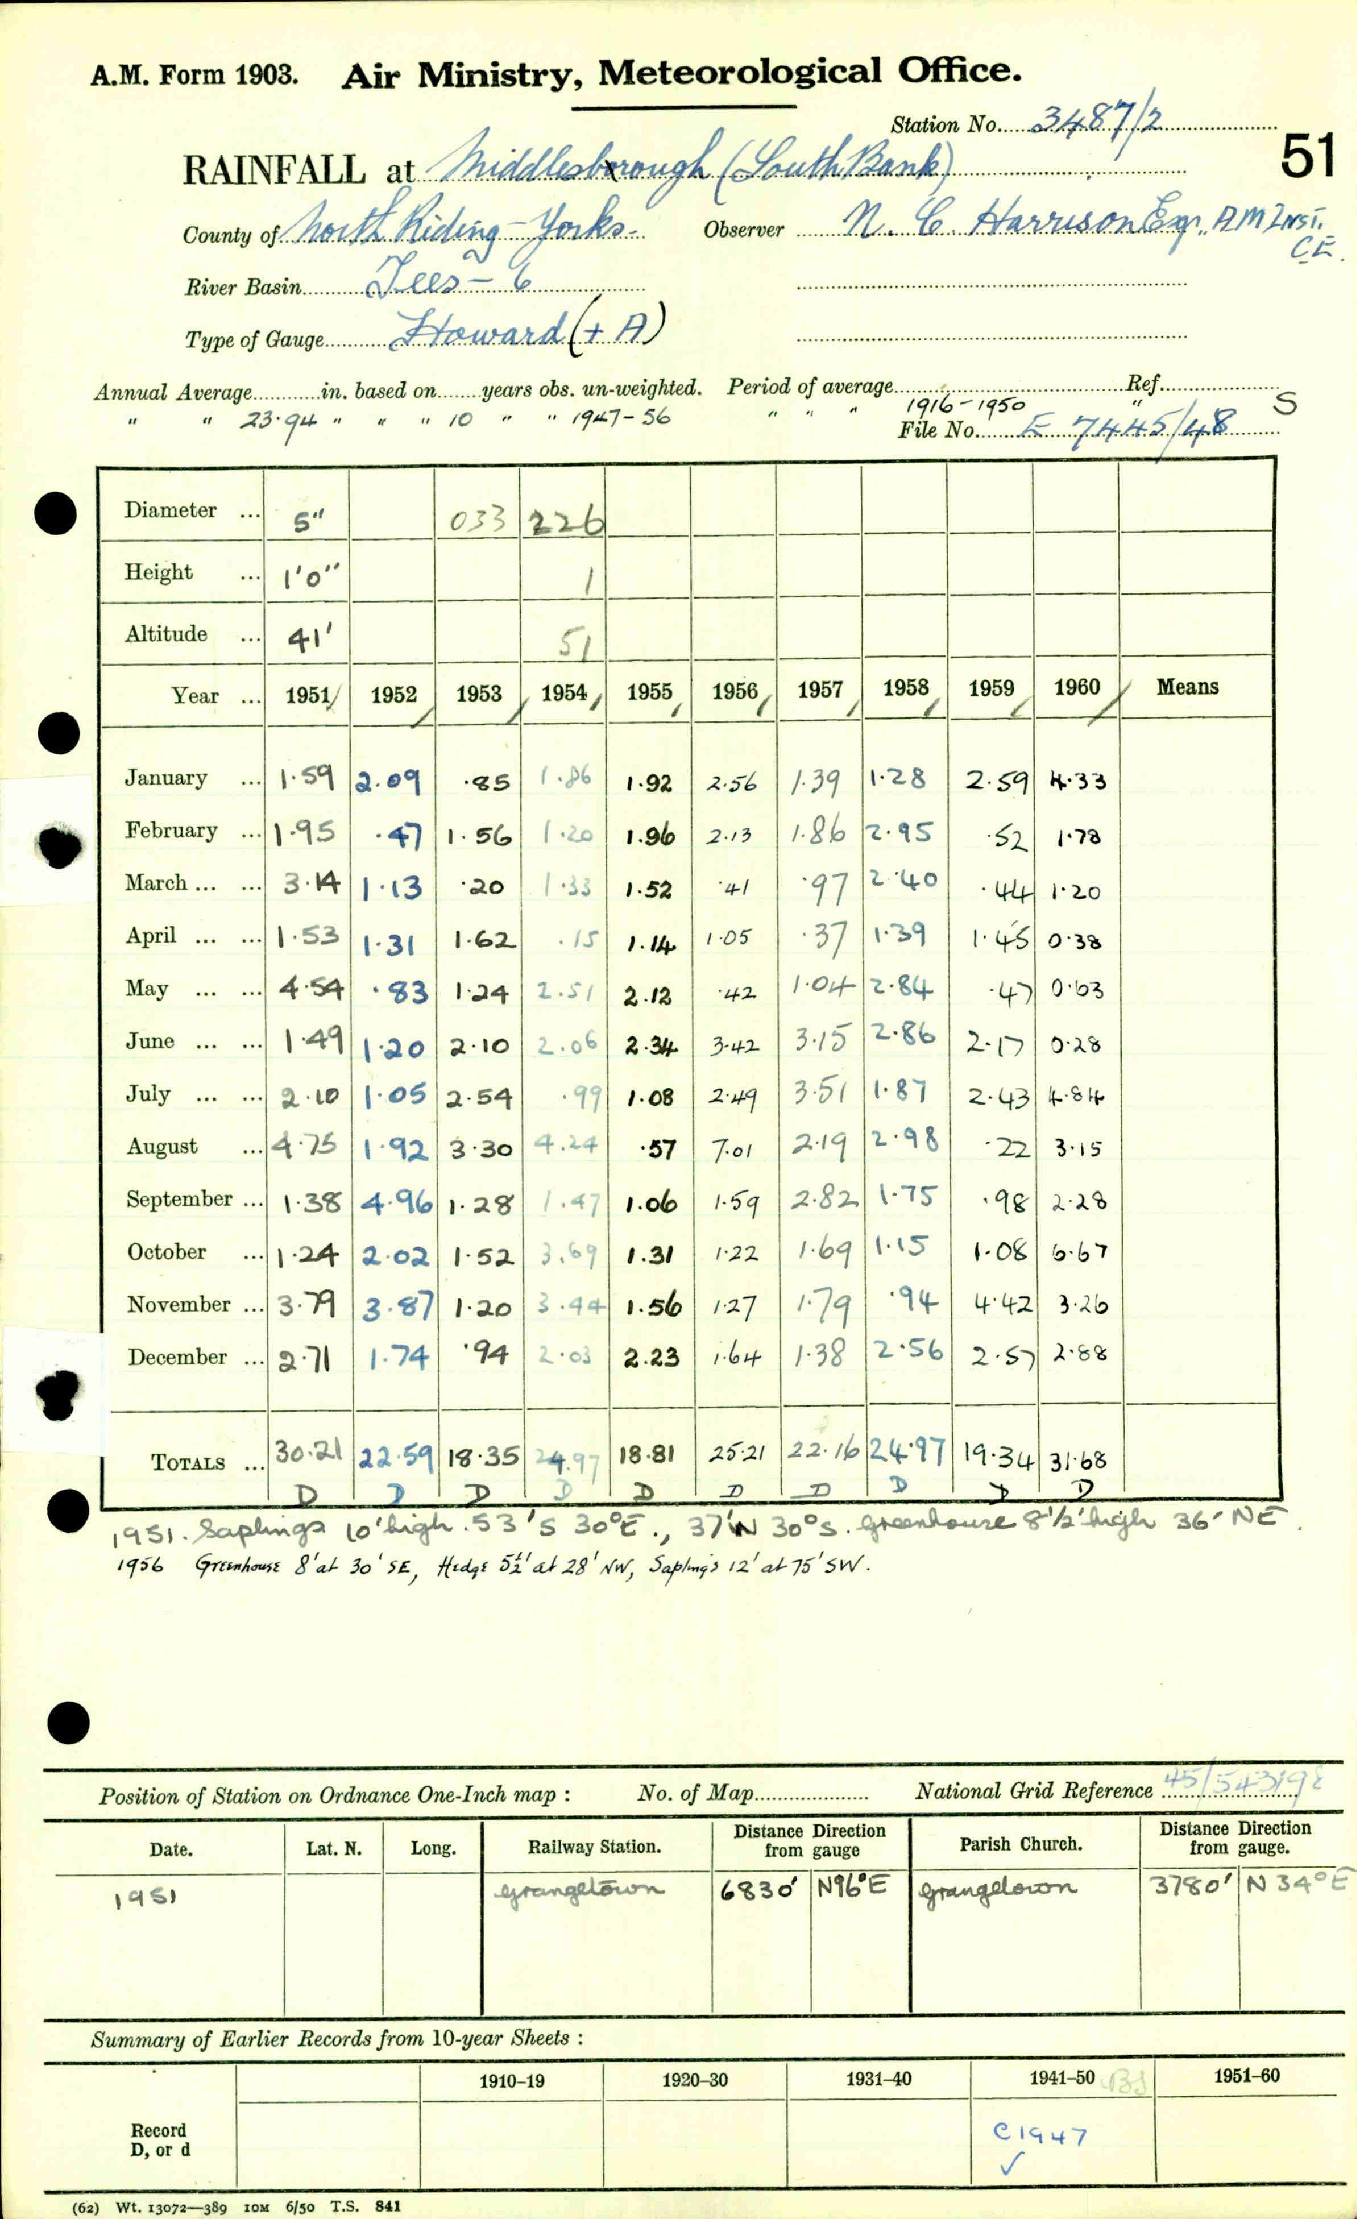 A.M. Form 1903. Air Ministry, Meteorological Office.
Station No. 3487/2
51
RAINFALL at Middlesbrough (South Bank)
County of North Riding - Yorks. Observer N. C. Harrison Esq., A M INST. C.E.
River Basin Tees - 6
Type of Gauge Howard (+ A)
Annual Average in. based on years obs. un-weighted. Period of average Ref.
" " 23.94 " " " 10 " " 1947-56 " " " 1916-1950 " S
File No. E 7445/48
Diameter ... 5" 033 226
Height ... 1'0" 1
Altitude ... 41' 51
Year ... 1951 1952 1953 1954 1955 1956 1957 1958 1959 1960 Means
January ... 1.59 2.09 .85 1.86 1.92 2.56 1.39 1.28 2.59 4.33
February ... 1.95 .47 1.56 1.20 1.96 2.13 1.86 2.95 .52 1.78
March ... ... 3.14 1.13 .20 1.33 1.52 .41 .97 2.40 .44 1.20
April ... ... 1.53 1.31 1.62 .15 1.14 1.05 .37 1.39 1.45 0.38
May ... ... 4.54 .83 1.24 2.51 2.12 .42 1.04 2.84 .47 0.63
June ... ... 1.49 1.20 2.10 2.06 2.34 3.42 3.15 2.86 2.17 0.28
July ... ... 2.10 1.05 2.54 .99 1.08 2.49 3.51 1.87 2.43 4.84
August ... 4.75 1.92 3.30 4.24 .57 7.01 2.19 2.98 .22 3.15
September ... 1.38 4.96 1.28 1.47 1.06 1.59 2.82 1.75 .98 2.28
October ... 1.24 2.02 1.52 3.69 1.31 1.22 1.69 1.15 1.08 6.67
November ... 3.79 3.87 1.20 3.44 1.56 1.27 1.79 .94 4.42 3.26
December ... 2.71 1.74 .94 2.03 2.23 1.64 1.38 2.56 2.57 2.88
TOTALS ... 30.21 22.59 18.35 24.97 18.81 25.21 22.16 24.97 19.34 31.68
D D D D D D D D D D
1951. Saplings 10' high. 53' S 30°E., 37'N 30°S. Greenhouse 8½' high 36' NE.
1956 Greenhouse 8' at 30' SE, Hedge 5½' at 28' NW, Saplings 12' at 75' SW.
Position of Station on Ordnance One-Inch map : No. of Map National Grid Reference 45/543198
Date. Lat. N. Long. Railway Station. Distance from Direction gauge Parish Church. Distance from Direction gauge.
1951 Grangetown 6830' N96°E Grangetown 3780' N 34°E
Summary of Earlier Records from 10-year Sheets :
1910-19 1920-30 1931-40 1941-50 1951-60
Record D, or d C1947 ✓
(62) Wt. 13072—389 10M 6/50 T.S. 841